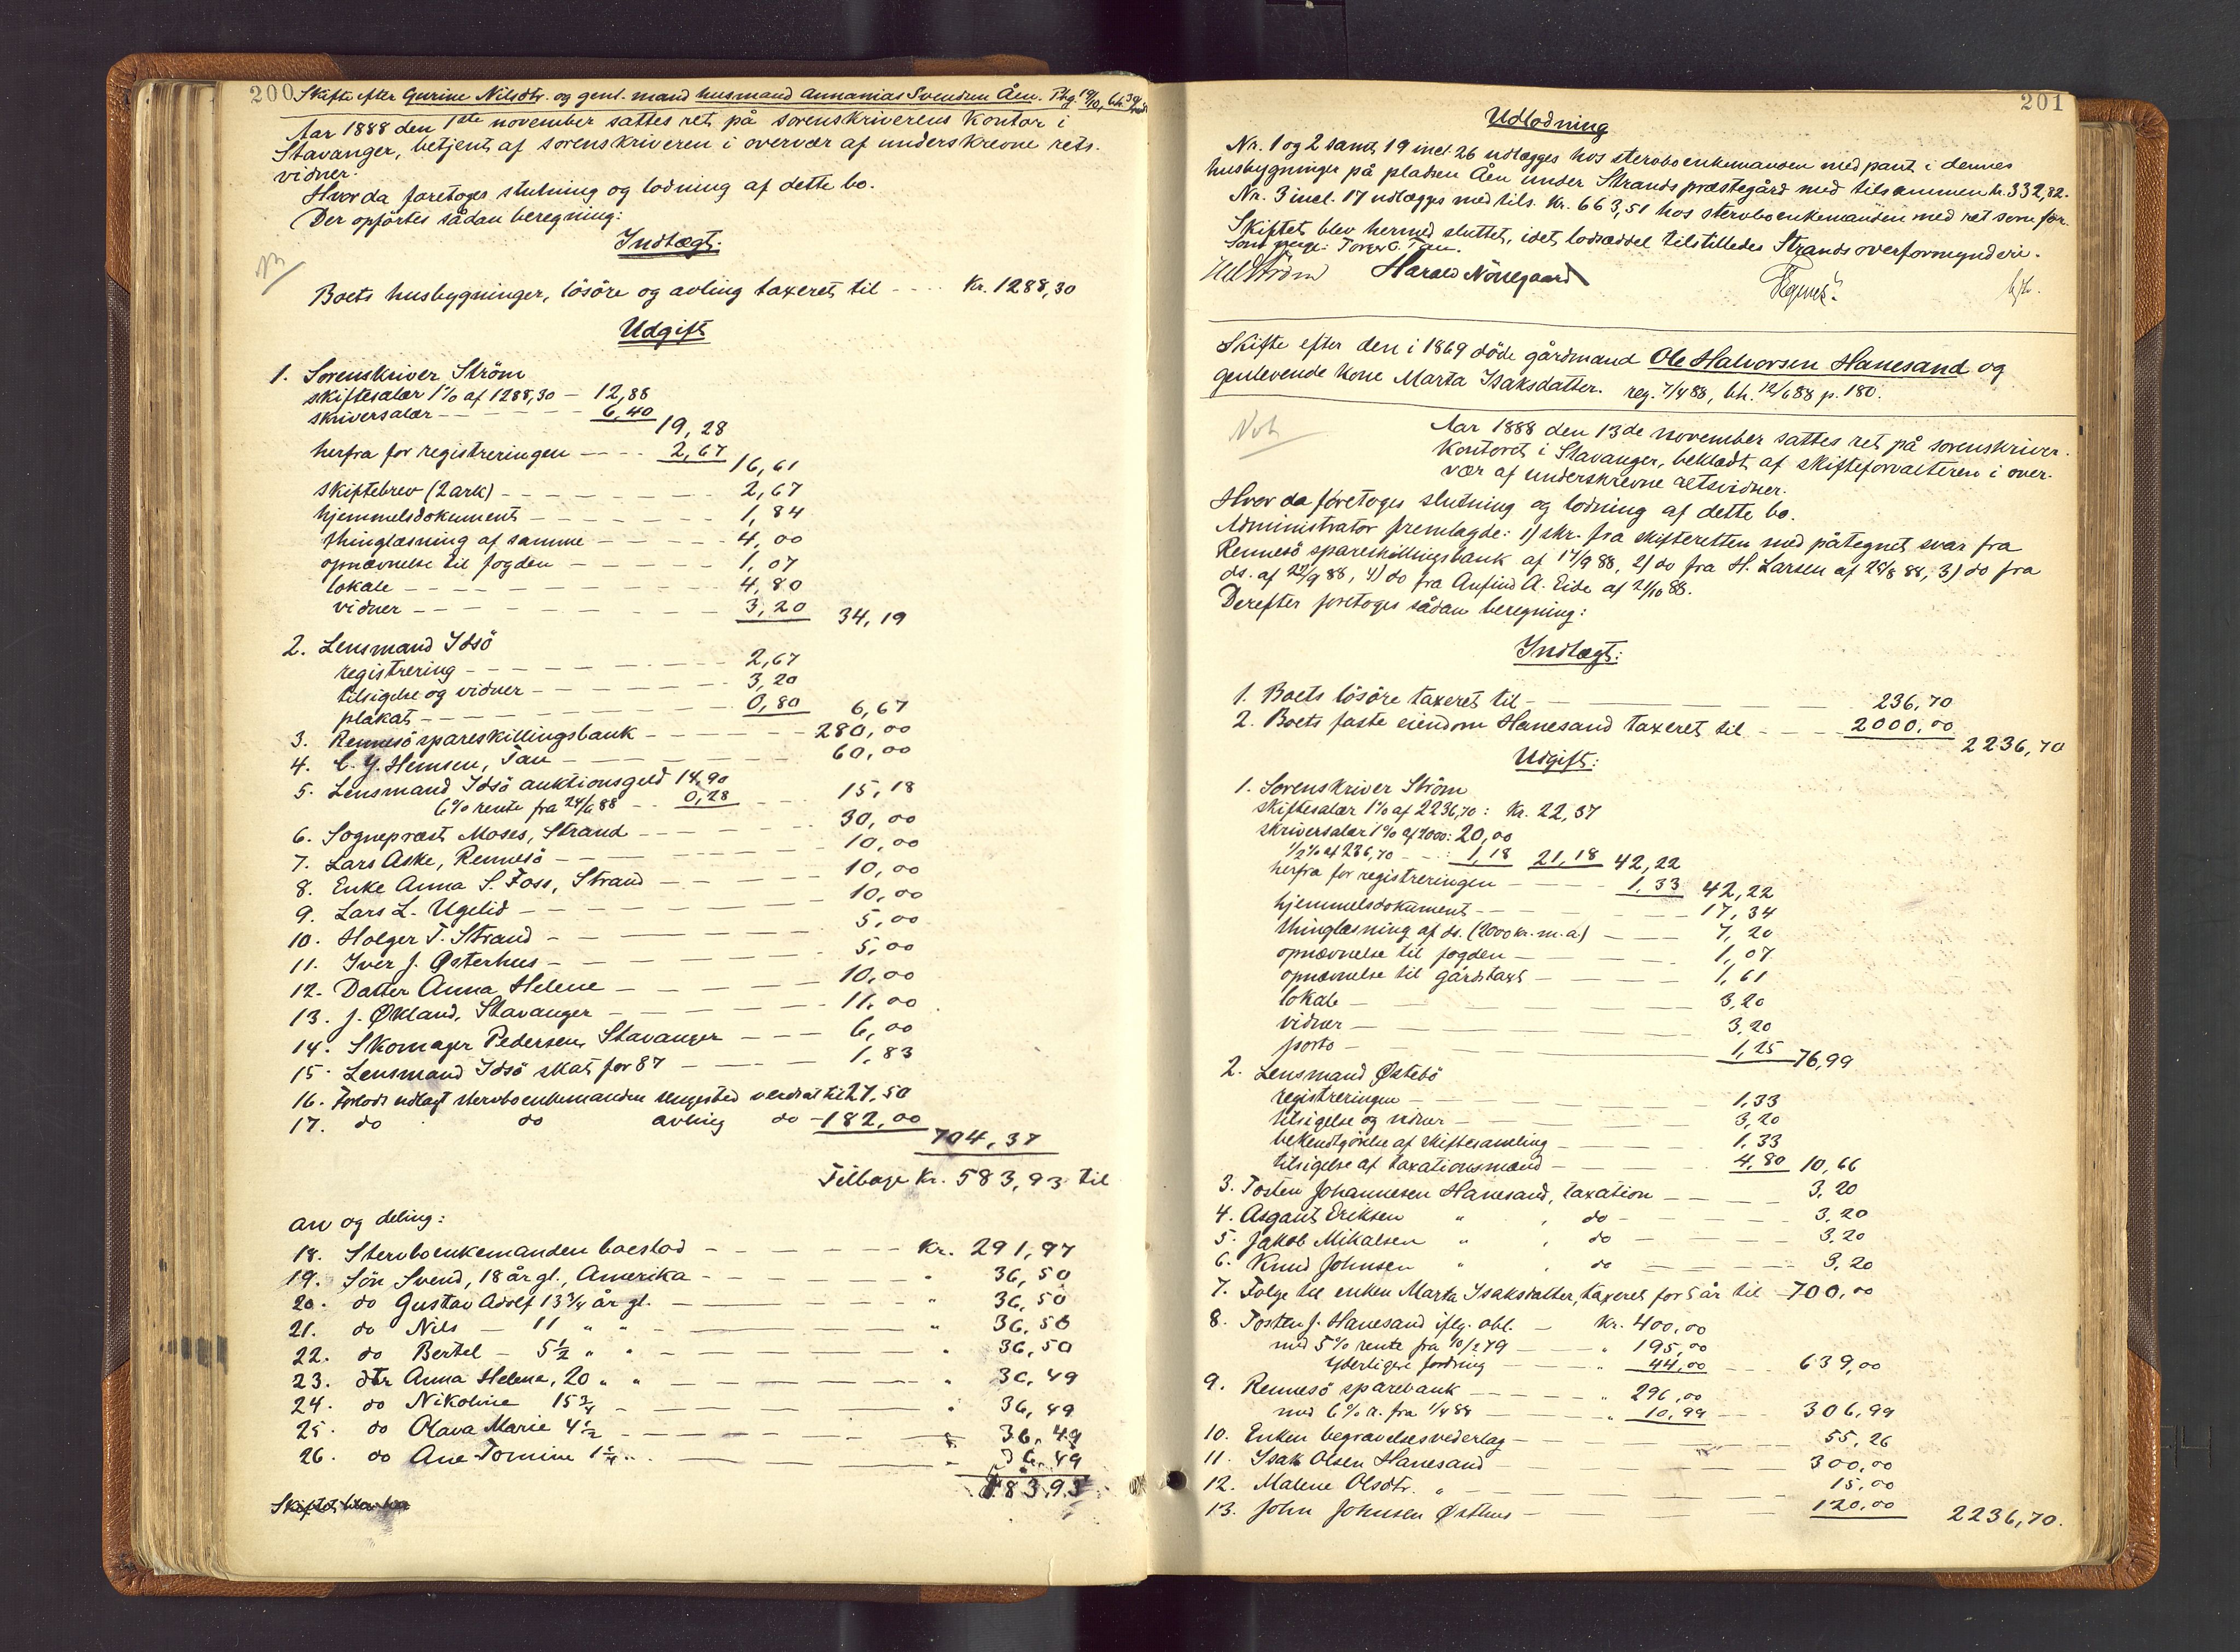 200 Skifte efter Gurine Nilsdtr. og genl. mand husmand Annanias Svendsen Åen. Phg. 19/10,
Aar 1888 den 1ste november sattes ret på sorenskriverens kontor i
Stavanger, betjent af sorenskriveren i overvær af underskrevne rets-
vidner.
Hvor da foretoges slutning og lodning af dette bo.
Der opførtes sådan beregning:
Indtægt.
Boets husbygninger, lösöre og avling taxeret til - - - - Kr. 1288,30
Udgift
1. Sorenskriver Ström
skiftesalær 1% af 1288,30 - 12,88
skriversalær - - - - - 6,40
19,28
herfra for registreringen - - - - 2,67
16,61
skiftebrev (2 ark) - - - - - - 2,67
hjemmelsdokument - - - - - 1,84
thinglæsning af samme - - - - - 4,00
opnævnelse til fogden - - - - - 1,07
lokale - - - - - - - - 4,80
vidner - - - - - - - 3,20 34,19
2. Lensmand Idsö
registrering - - - - - - - 2,67
tilsigelse og vidner - - - - - - 3,20
plakat - - - - - - - - 0,80 6,67
3. Rennesö spareskillingsbank - - - - - - 280,00
4. C. G. Hemsen, Tau - - - - - - 60,00
5. Lensmand Idsö auktionsgeld 14,90
6% rente fra 24/6 88 - - 0,28 - - - 15,18
6. Sognepræst Moses, Strand - - - - - - 30,00
7. Lars Aske, Rennesö - - - - - - 10,00
8. Enke Anna S. Foss, Strand - - - - - 10,00
9. Lars L. Ugelid - - - - - - 10,00
10. Holger T. Strand - - - - - - 5,00
11. Iver J. Østerhus - - - - - - 5,00
12. Datter Anna Helene - - - - - - 10,00
13. J. Økland, Stavanger - - - - - - 11,00
14. Skomager Pedersen, Stavanger - - - 6,00
15. Lensmand Idsö skat for 87 - - - - 1,83
16. Forlods udlagt stervboenkemanden sengested værdsat til 27,50
17. do do avling do - 182,00
704,37
Tilbage Kr. 583,93 til
arv og deling:
18. Stervboenkemanden boeslod - - - - - - Kr. 291,97
19. Sön Svend, 18 år gl., Amerika - - - - - - " 36,50
20. do Gustav Adolf 13 3/4 år gl. - - - - - " 36,50
21. do Nils - 11 " " - - - - - " 36,50
22. do Bertel - 5 1/2 " " - - - - - " 36,50
23. dtr Anna Helene, 20 " " - - - - - " 36,49
24. do Nikoline 15 3/4 - - - - - - " 36,49
25. do Olava Marie 4 1/2 - - - - - - " 36,49
26. do Ane Tomine 1 1/4 " - - - - - " 36,49
583,93
201
Udlodning
Nr. 1 og 2 samt 19 incl. 26 udlægges hos stervboenkemanden med pant i dennes
husbygninger på pladsen Åen under Strands præstegård med tilsammen kr. 332,82.
Nr. 3 incl. 17 udlægges med tils. Kr. 663,51 hos stervboenkemanden med ret som før.
Skiftet blev hermed sluttet, idet lodseddel tilstilledes Strands overformynderi.
Harald Nörregaard
Skifte efter den i 1869 döde gårdmand Ole Halvorsen Hanesand og
genlevende kone Marta Isaksdatter. reg. 7/4 88, bh. 12/6 88 p. 180.
Not
Aar 1888 den 13de november sattes ret på sorenskriver-
kontoret i Stavanger, beklædt af skifteforvalteren i over-
vær af underskrevne retsvidner.
Hvor da foretoges slutning og lodning af dette bo.
Administrator fremlagde: 1) skr. fra skifteretten med påtegnet svar fra
Rennesö spareskillingsbank af 17/9 88, 2) do fra H. Larsen af 28/8 88, 3) do fra
ds. af 22/9 88, 4) do fra Anfind A. Eide af 21/10 88.
Derefter foretoges sådan beregning:
Indtægt:
1. Boets lösöre taxeret til - - - - 236,70
2. Boets faste eiendom Hanesand taxeret til - - - - 2000,00
2236,70
Udgift:
1. Sorenskriver Ström
skiftesalær 1% af 2236,70: Kr. 22,37
skriversalær 1% af 2000: 20,00
1/2% af 236,70 - - 1,18 21,18 42,22
herfra for registreringen - - - - 1,33 42,22
hjemmelsdokument - - - - - - 17,34
thinglæsning af ds. (2000 kr. m.a.) - - - 7,20
opnævnelse til fogden - - - - - 1,07
opnævnelse til gårdstaxt - - - - - 1,61
lokale - - - - - - 3,20
vidner - - - - - - 3,20
porto - - - - - - 1,25 76,99
2. Lensmand Østebö
registreringen - - - - - - 1,33
tilsigelse og vidner - - - - - - 3,20
bekendtgörelse af skiftesamling - - - - 1,33
tilsigelse af taxationsmænd - - - - 4,80 10,66
3. Tosten Johannesen Hanesand, taxation - - - - 3,20
4. Asgaut Eriksen " , do - - - - 3,20
5. Jakob Mikalsen " , do - - - - 3,20
6. Knud Johnsen " , do - - - - 3,20
7. Folge til enken Marta Isaksdatter, taxeret for 5 år til - 700,00
8. Tosten J. Hanesand iflg. obl. - Kr. 400,00
med 5% rente fra 10/2 79 - - - " 195,00
yderligere fordring - - - " 44,00 - - - 639,00
9. Rennesö sparebank - - - - " 296,00
med 6% r. fra 1/4 88 - - - - " 10,99 - - 306,99
10. Enken begravelsesvederlag - - - - - 55,26
11. Isak Olsen Hanesand - - - - - 300,00
12. Malene Olsdtr. " - - - - - 15,00
13. John Johnsen Østhus - - - - - 120,00 2236,70.